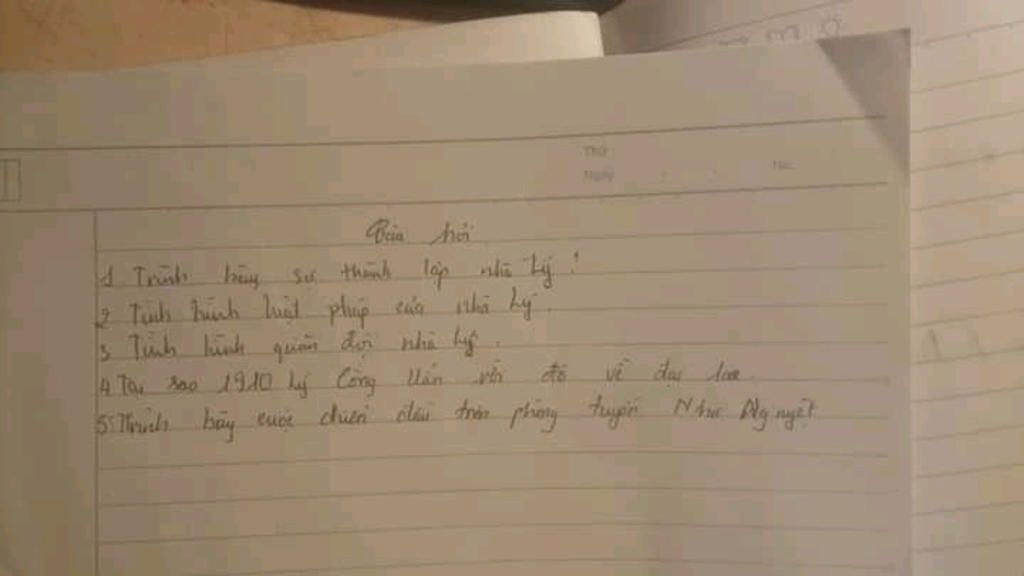 Thứ
Ngày
No.
Câu hỏi
1. Trình bày sự thành lập nhà Lý?
2. Tình hình luật pháp của nhà Lý.
3. Tình hình quân đội nhà Lý.
4. Tại sao 1910 Lý Công Uẩn dời đô về đại la
5. Trình bày cuộc chiến đấu trên phòng tuyến Như Nguyệt